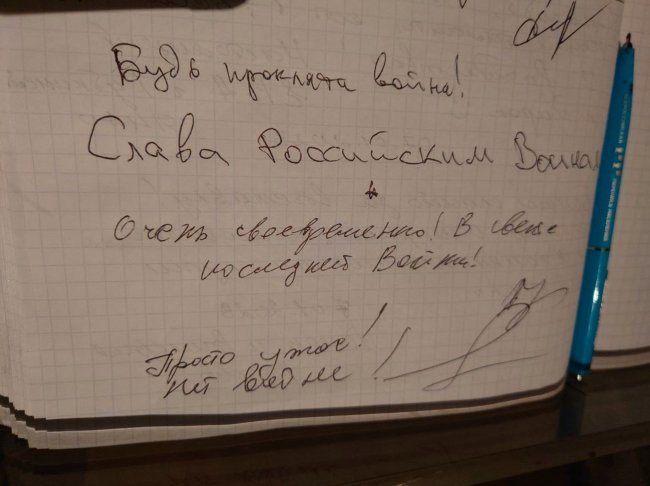 Будь проклята война!
Слава Российским Воинам
Очень своевременно! В свете
последней Войны!
Просто ужас!
нет войне!